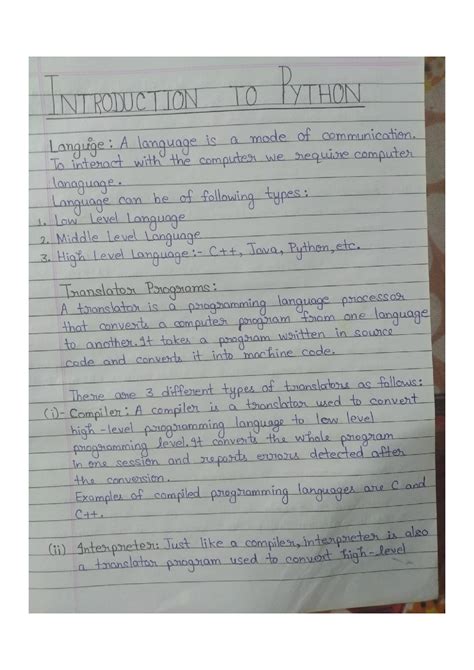 INTRODUCTION TO PYTHON
Language: A language is a mode of communication.
To interact with the computer we require computer
lanaguage.
Language can be of following types:
1. Low Level Language
2. Middle Level Language
3. High Level Language:- C++, Java, Python, etc.
Translator Programs:
A translator is a programming language processor
that converts a computer program from one language
to another. It takes a program written in source
code and converts it into machine code.
There are 3 different types of translators as follows:
(i)- Compiler: A compiler is a translator used to convert
high-level programming language to low level
programming level. It converts the whole program
in one session and reports errors detected after
the conversion.
Examples of compiled programming languages are C and
C++.
(ii) Interpreter: Just like a compiler, interpreter is also
a translator program used to convert high-level